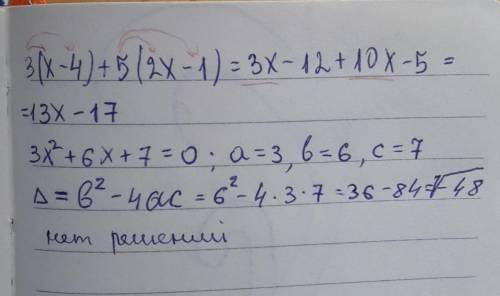 3(x-4)+5(2x-1)=3x-12+10x-5=
=13x-17
3x²+6x+7=0; a=3, b=6, c=7
Δ=b²-4ac=6²-4·3·7=36-84=√-48
нет решений